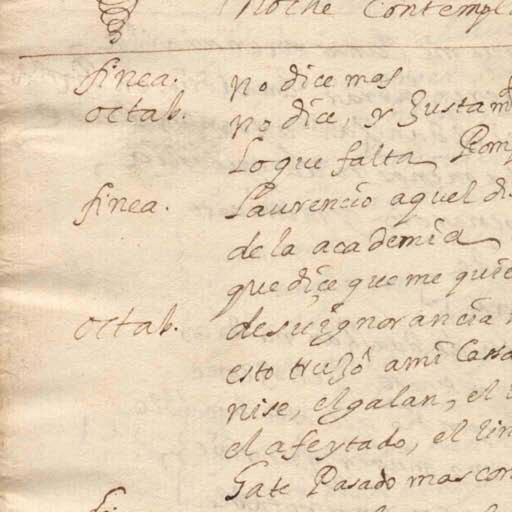 noche Contempl
finea. no dice mas
octab. no dice, y Justam
Lo que falta Romp
finea. Laurencio aquel di
de la academia
que dice que me quie
octab. de su ignorancia
esto truxo a mi Cassa
nise, el galan, el
el afeytado, el lin
Gate Pasado mas con